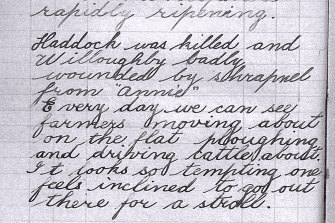 rapidly ripening.
Haddock was killed and
Willoughby badly
wounded by shrapnel
from "Annie"
Every day we can see
farmers moving about
on the flat ploughing
and driving cattle about.
It looks so tempting one
feels inclined to go out
there for a stroll.